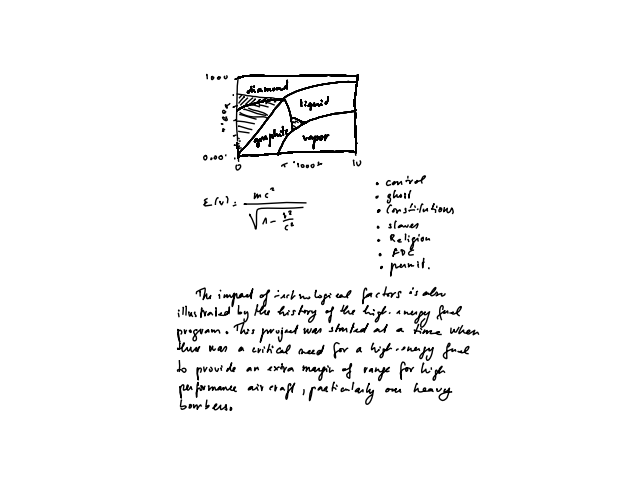 1000
diamond
liquid
graphite
vapor
0.001
0
10
E(v) = mc² / √(1 - v²/c²)
• control
• ghost
• Constitutions
• slaves
• Religion
• ADC
• permit.
The impact of technological factors is also
illustrated by the history of the high-energy fuel
program. This project was started at a time when
there was a critical need for a high-energy fuel
to provide an extra margin of range for high
performance aircraft, particularly our heavy
bombers.